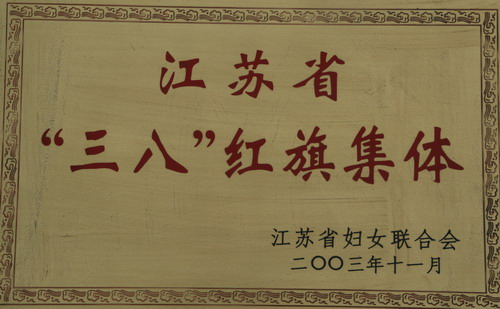 江苏省
“三八”红旗集体
江苏省妇女联合会
二〇〇三年十一月